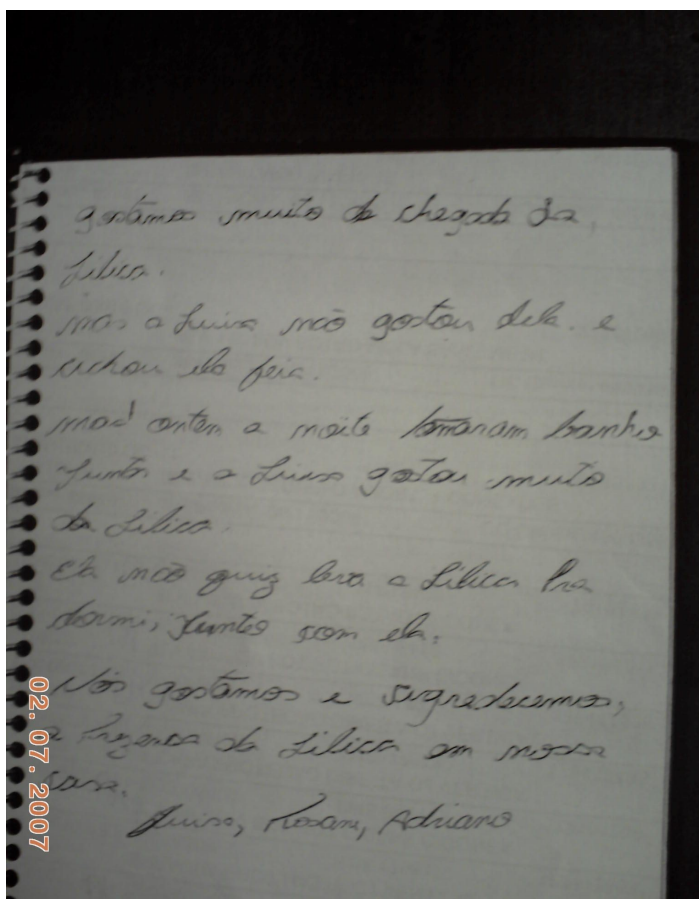 gostamos muito da chegada da,
Lilica.
mas a Luisa não gostou dela. e
achou ela feia.
mas ontem a noite tomaram banho
Junto e a Luisa gostou muito
da Lilica.
Ela não quiz leva a Lilica Pra
dormi, Junto com ela.
Nós gostamos e agradecemos,
a Prezensa da Lilica em nossa
casa.
Luisa, Rosane, Adriano
02.07.2007